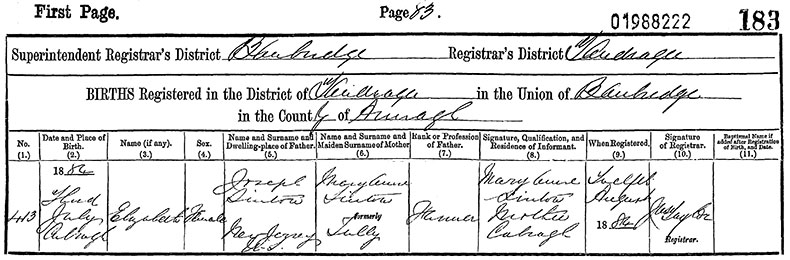 First Page. Page 83. 01988222 183
Superintendent Registrar's District Banbridge Registrar's District Tandragee
BIRTHS Registered in the District of Tandragee in the Union of Banbridge
in the County of Armagh
No. (1.) Date and Place of Birth. (2.) Name (if any). (3.) Sex. (4.) Name and Surname and Dwelling-place of Father. (5.) Name and Surname and Maiden Surname of Mother (6.) Rank or Profession of Father. (7.) Signature, Qualification, and Residence of Informant. (8.) When Registered. (9.) Signature of Registrar. (10.) Baptismal Name if added after Registration of Birth, and Date. (11.)
413
1884
Third
July
Cabragh
Elizabeth
Female
Joseph
Sinton
New Jersey
U.S.
Mary Anne
Sinton
formerly
Tully
Farmer
Mary Anne
Sinton
Mother
Cabragh
Twelfth
August
1884
Taylor
Registrar.